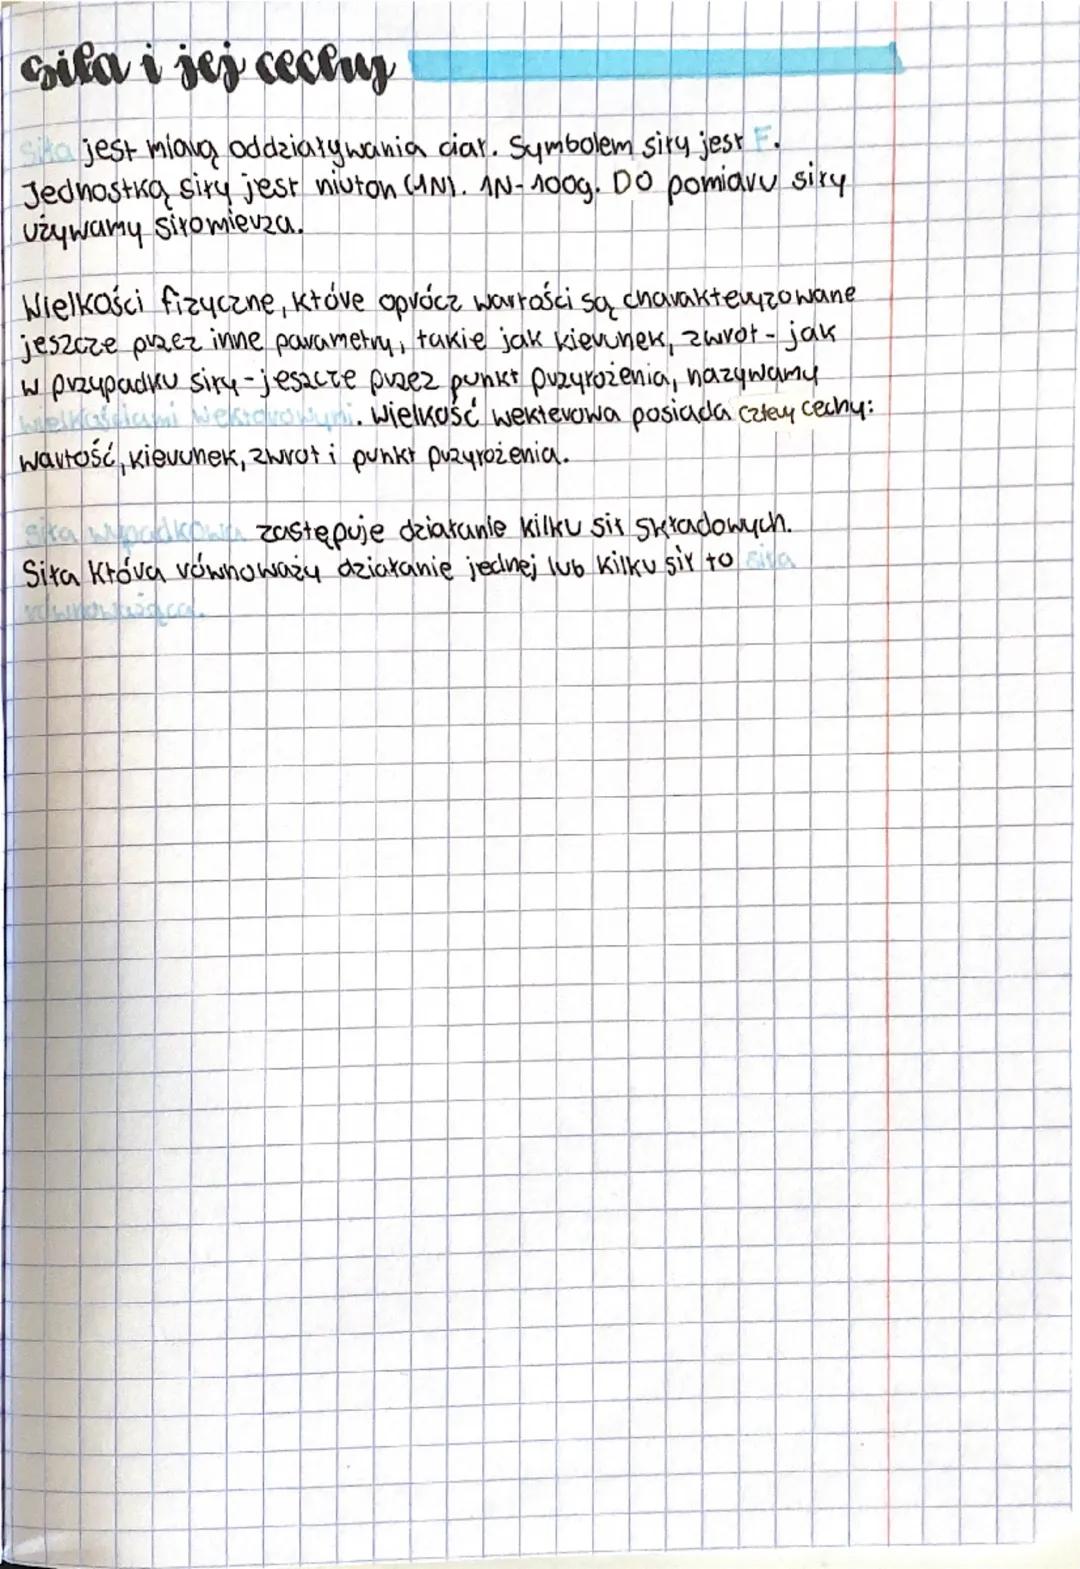 siła i jej cechy
siła jest miarą oddziaływania ciał. Symbolem siły jest F.
Jednostką siły jest niuton (1N). 1N-100g. DO pomiaru siły
używamy siłomierza.
Wielkości fizyczne, które oprócz wartości są charakteryzowane
jeszcze przez inne parametry, takie jak kierunek, zwrot - jak
w przypadku siły - jeszcze przez punkt przyłożenia, nazywamy
wielkościami wektorowymi. Wielkość wektorowa posiada cztery cechy:
wartość, kierunek, zwrot i punkt przyłożenia.
siła wypadkowa zastępuje działanie kilku sił składowych.
Siła która równoważy działanie jednej lub kilku sił to siła
równoważąca.